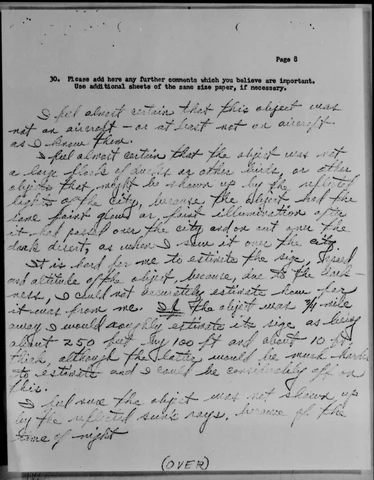 Page 8
30. Please add here any further comments which you believe are important.
Use additional sheets of the same size paper, if necessary.
I feel almost certain that this object was
not an aircraft - or at least not an aircraft
as I know them.
I feel almost certain that the object was not
a large flock of ducks or other birds, or other
objects that might be shown up by the reflected
lights of the city, because the object had the
same faint glow or faint illumination after
it had passed over the city and on out over the
dark desert, as when I saw it over the city.
It is hard for me to estimate the size, speed
and altitude of the object, because, due to the dark-
ness, I could not accurately estimate how far
it was from me. If the object was 3/4 mile
away I would roughly estimate its size as being
about 250 feet by 100 ft and about 10 ft
thick, although the latter would be much harder
to estimate and I could be considerably off on
this.
I feel sure the object was not shown up
by the reflected sun's rays, because of the
time of night
(OVER)